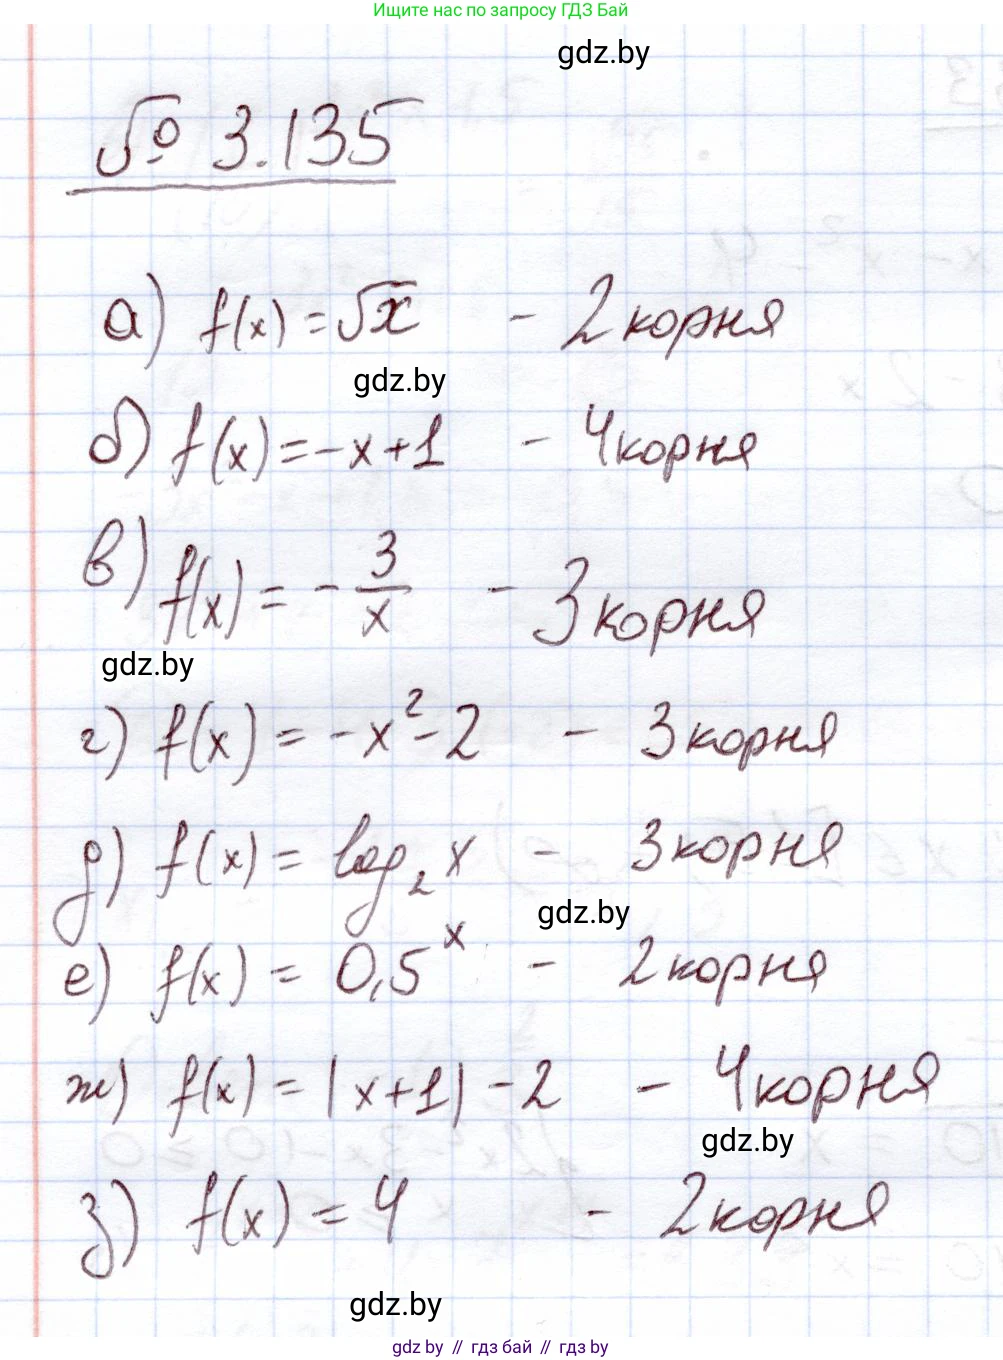 Ищите нас по запросу ГДЗ Бай
gdz.by
№ 3.135
а) f(x) = √x - 2 корня
gdz.by
б) f(x) = -x+1 - 4 корня
в) f(x) = - 3/x - 3 корня
gdz.by
г) f(x) = -x² - 2 - 3 корня
д) f(x) = log₂ x - 3 корня
gdz.by
е) f(x) = 0,5ˣ - 2 корня
ж) f(x) = |x+1| - 2 - 4 корня
gdz.by
з) f(x) = 4 - 2 корня
gdz.by
gdz.by // гдз бай // гдз by